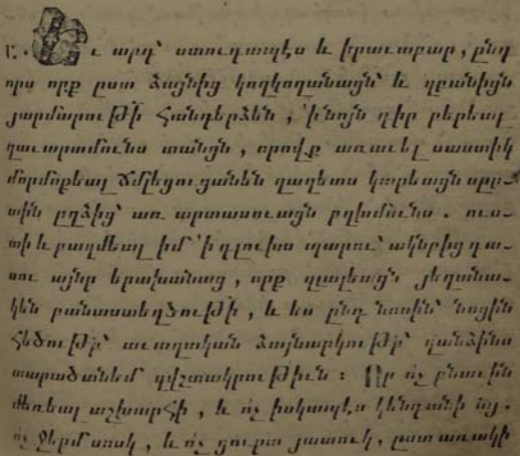 Ի. Եւ արդ՝ ստուգապէս և իրաւաբար, ընդ
որս որք ըստ ձայնից կողկողանացն՝ և զբանիցն
յարմարութի հանդերձեն, 'ի նոյն գիր բերեալ
զաւարտմունս տանցն, որովք առաւել սաստիկ
մորմոքեալ ճմլեցուցանեն զաղետս կարեացն սըր֊
տին ըղձից՝ առ արտասուացն բղխմունս. ուս֊
տի և բազմեալ իմ 'ի գլուխս պարու՝ ակնբից դա֊
սու այնր երախանաց, որք զլալեացն յեղանա֊
կեն բանաստեղծութի, և ես ընդ նոսին՝ նոցին
հեծութբ՝ աւաղական ձայնարկութբ՝ զանձինս
տարածանեմ զվշտակրութիւն։ Որ ոչ բնաւին
մեռեալ աշխարհի, և ոչ իսկապէս կենդանի այ.
ոչ ջերմ սոսկ, և ոչ ցուրտ յատուկ, ըստ առակի